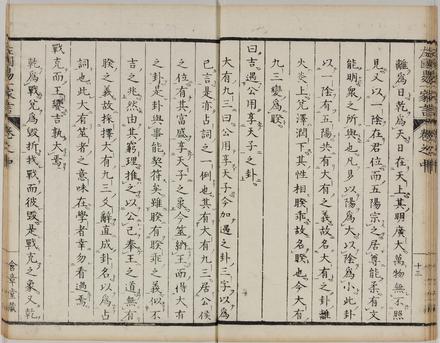 離爲日乾爲天日在天上其明廣大萬物無不照
見又以一陰在君位而五陽宗之居尊能柔有文
能明衆之所與也凡見以陽爲大以陰爲小此卦
以一陰有五陽共有大有之義故大有之卦離
火炎上兌澤潤下其性相睽乖故名睽也今大有
九三變爲睽
曰吉遇公用享天子之卦
大有九三曰公用享天子今加遇之卦三字以爲
己言是亦占詞之一例也其大有九三居公侯
之位有其富盛享天子之象今筮納王而得大有
之卦是卦與事能契符矣雖睽有睽乖之義似不
吉之兆然由其窮理推之以公己奉王之道無有
睽之義故採擇大有九三爻辭直成卦名以爲占
詞也此大有筮者之意味在學者幸勿看過焉
戰克而王饗吉孰大焉
乾爲戰兌爲毀折我戰而彼毀是戰克之象又乾
十三
含章堂藏